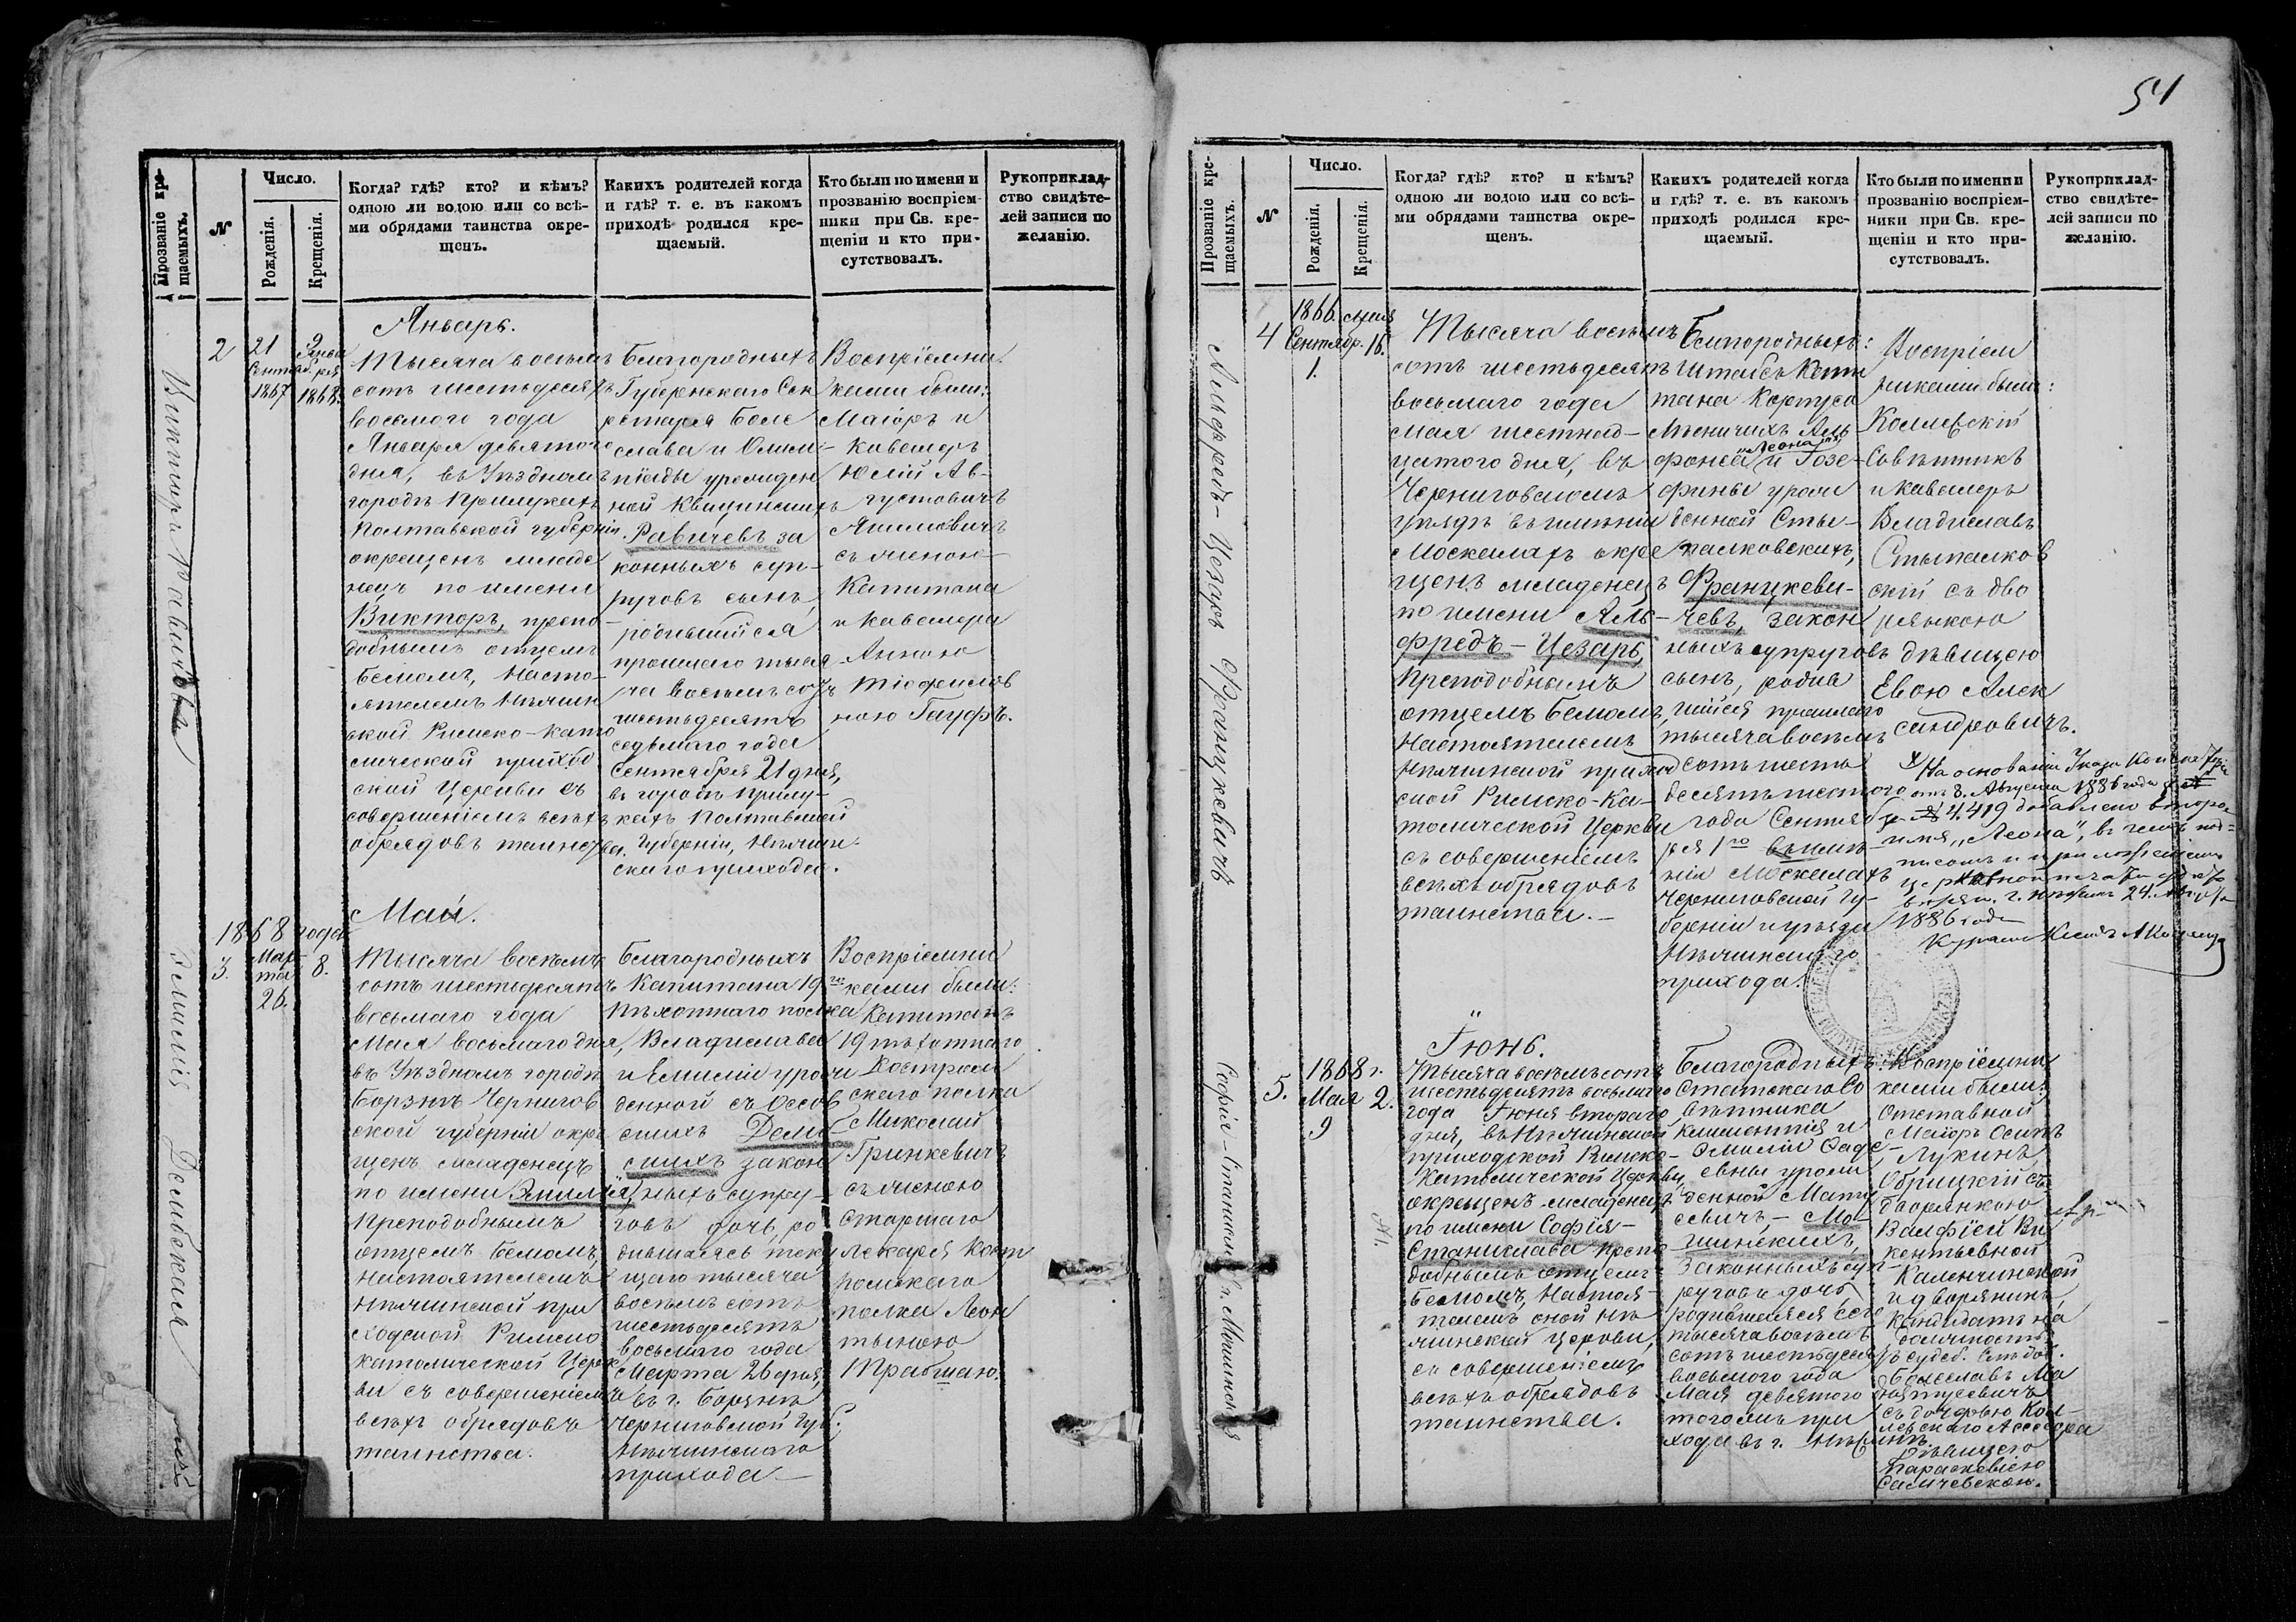 54
Прозваніе кре-
щаемыхъ.
№
Число.
Рожденія.
Крещенія.
Когда? гдѣ? кто? и кѣмъ?
одною ли водою или со всѣ-
ми обрядами таинства окре-
щенъ.
Какихъ родителей когда
и гдѣ? т. е. въ какомъ
приходѣ родился кре-
щаемый.
Кто были по имени и
прозванію воспріем-
ники при Св. кре-
щеніи и кто при-
сутствовалъ.
Рукоприклад-
ство свидѣте-
лей записи по
желанію.
Викторъ
2
21
Сентяб.
1867
9
Января
1868.
Январь.
Тысяча восемь
сотъ шестьдесятъ
восьмого года
Января девятого
дня, въ Уѣздномъ
городѣ Прилукахъ
Полтавской губерніи
окрещенъ младе
нецъ по имени
Викторъ, препо
добнымъ отцемъ
Бемомъ, Насто-
ятелемъ Нѣжин
ской Римско-като
лической приход
ской Церкви съ
совершеніемъ всѣхъ
обрядовъ таинства.
Благородныхъ
Губернскаго Сек
ретаря Боле
слава и Олим-
піады урожден
ной Квицинскихъ
Равичевъ за
конныхъ суп-
руговъ сынъ,
родившійся
прошлаго тыся
ча восемь сотъ
шестьдесятъ
седьмаго года
Сентября 21 дня,
въ городѣ Прилу-
кахъ Полтавской
Губерніи, Нѣжин-
скаго прихода.
Воспріемни-
ками были:
Маіоръ и
Кавалеръ
Юлій Ав-
густовичъ
Якимовичъ
съ женою
Капитана
и Кавалера
Анною
Тіофилов
ною Гауфъ.
Эмилія Дембская
1868 года
3.
Мар
та
26.
8.
Май.
Тысяча восемь
сотъ шестьдесятъ
восьмаго года
Мая восьмаго дня,
въ Уѣздномъ городѣ
Борзнѣ Чернигов
ской губерніи окре
щенъ младенецъ
по имени Эмилія,
Преподобнымъ
отцемъ Бемомъ,
Настоятелемъ
Нѣжинской при
ходской Римско
католической Церк
ви съ совершеніемъ
всѣхъ обрядовъ
таинства.
Благородныхъ
Капитана 19го
Пѣхотнаго полка
Владислава
и Емиліи урож
денной съ Осов
скихъ Демб-
скихъ закон
ныхъ супру-
говъ дочь, ро
дившаяся теку
щаго тысяча
восемь сотъ
шестьдесятъ
восьмаго года
Марта 26 дня,
въ г. Борзнѣ
Черниговской Губ.,
Нѣжинскаго
прихода.
Воспріемни
ками были:
Капитанъ
19 пѣхотнаго
Костром
скаго полка
Николай
Гринкевичъ
съ женою
Старшаго
лекаря Кост
ромскаго
полка Леон
тыною
Прозваніе кре-
щаемыхъ.
№
Число.
Рожденія.
Крещенія.
Когда? гдѣ? кто? и кѣмъ?
одною ли водою или со всѣ-
ми обрядами таинства окре-
щенъ.
Какихъ родителей когда
и гдѣ? т. е. въ какомъ
приходѣ родился кре-
щаемый.
Кто были по имени и
прозванію воспріем-
ники при Св. кре-
щеніи и кто при-
сутствовалъ.
Рукоприклад-
ство свидѣте-
лей записи по
желанію.
Альфредъ-Цезарь Францкевичъ
4
1866.
Сентябр.
1.
мая
16.
Тысяча восемь
сотъ шестьдесятъ
восьмаго года
мая шестнад-
цатого дня, въ
Черниговскомъ
уѣздѣ въ имѣніи
Москалахъ окре
щенъ младенецъ
по имени Аль-
фредъ-Цезарь,
Преподобнымъ
отцемъ Бемомъ,
Настоятелемъ
Нѣжинской приход
ской Римско-Ка-
толической Церкви
съ совершеніемъ
всѣхъ обрядовъ
таинства.-
Благородныхъ:
Штабсъ Капи
тана Корпуса
Лѣсничихъ Аль
"Леона"
фонса и Іозе-
фины урож
денной Сты-
палковскихъ,
Францкеви-
чевъ, закон
ныхъ супруговъ
сынъ, родив
шійся прошлаго
тысяча восемь
сотъ шесть
десятъ шестого
года Сентяб
ря 1го въ имѣ-
ніи Москалахъ
Черниговской Гу-
берніи и уѣзда
Нѣжинскаго
прихода.
Воспріем
никами были:
Коллежскій
Совѣтникъ
и Кавалеръ
Владиславъ
Стыпалков
скій съ дво
рянкою
дѣвицею
Евою Алек
сандровичъ.
На основаніи Указа
отъ 8. Августа 1886 года
за № 4,419 добавлено второе
имя „Леона", въ чемъ под=
писомъ и приложеніемъ
церковной печати
24. Августа
1886 года
Софія-Станислава Мошинская
5.
1868 г.
Мая
9
2.
Іюнь.
Тысяча восемьсотъ
шестьдесятъ восьмаго
года Іюня втораго
дня, въ Нѣжинской
приходской Римско-
Католической Церкви,
окрещенъ младенецъ
по имени Софія-
Станислава препо
добнымъ отцемъ
Бемомъ, Настоя-
телемъ оной Нѣ
жинской Церкви,
съ совершеніемъ
всѣхъ обрядовъ
таинства.
Благородныхъ:
Статскаго Со
вѣтника
Климентія и
Эмиліи
урож
денной Мату
севичъ, Мо-
шинскихъ,
законныхъ суп-
руговъ дочь,
родившаяся сего
тысяча восемь
сотъ шестьдесятъ
восьмого года
Мая девятого
того жъ при
хода въ г. Нѣжинѣ.
Воспріемни
ками были:
Отставной
Маіоръ Осипъ
Лукинъ
Обрицкій съ
дворянкою
Ви
кентьевной
Каменчинской
и дворянинъ,
Кандидатъ на
должность
судеб. Слѣдов.
Болеславъ Ма
тусевичъ
съ дочерью Кол-
лежскаго Ассесора
дѣвицею
Параскевіею
Саличевскою.